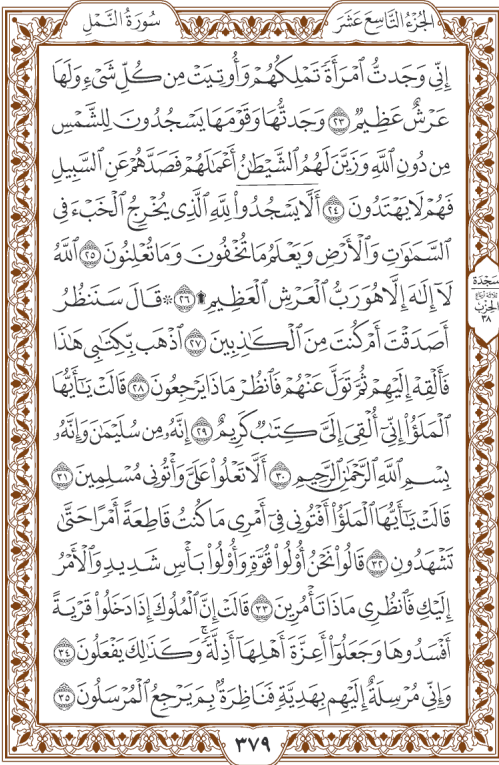 سُورَةُ النَّمْلِ
الجُزْءُ التَّاسِعَ عَشَرَ
إِنِّي وَجَدتُّ ٱمْرَأَةً تَمْلِكُهُمْ وَأُوتِيَتْ مِن كُلِّ شَيْءٍ وَلَهَا
عَرْشٌ عَظِيمٌ ٢٣ وَجَدتُّهَا وَقَوْمَهَا يَسْجُدُونَ لِلشَّمْسِ
مِن دُونِ ٱللَّهِ وَزَيَّنَ لَهُمُ ٱلشَّيْطَٰنُ أَعْمَٰلَهُمْ فَصَدَّهُمْ عَنِ ٱلسَّبِيلِ
فَهُمْ لَا يَهْتَدُونَ ٢٤ أَلَّا يَسْجُدُواْ لِلَّهِ ٱلَّذِي يُخْرِجُ ٱلْخَبْءَ فِي
ٱلسَّمَٰوَٰتِ وَٱلْأَرْضِ وَيَعْلَمُ مَا تُخْفُونَ وَمَا تُعْلِنُونَ ٢٥ ٱللَّهُ
لَآ إِلَٰهَ إِلَّا هُوَ رَبُّ ٱلْعَرْشِ ٱلْعَظِيمِ ۩ ٢٦ ۞ قَالَ سَنَنظُرُ
أَصَدَقْتَ أَمْ كُنتَ مِنَ ٱلْكَٰذِبِينَ ٢٧ ٱذْهَب بِّكِتَٰبِي هَٰذَا
فَأَلْقِهْ إِلَيْهِمْ ثُمَّ تَوَلَّ عَنْهُمْ فَٱنظُرْ مَاذَا يَرْجِعُونَ ٢٨ قَالَتْ يَٰٓأَيُّهَا
ٱلْمَلَؤُاْ إِنِّيٓ أُلْقِيَ إِلَيَّ كِتَٰبٌ كَرِيمٌ ٢٩ إِنَّهُۥ مِن سُلَيْمَٰنَ وَإِنَّهُۥ
بِسْمِ ٱللَّهِ ٱلرَّحْمَٰنِ ٱلرَّحِيمِ ٣٠ أَلَّا تَعْلُواْ عَلَيَّ وَأْتُونِي مُسْلِمِينَ ٣١
قَالَتْ يَٰٓأَيُّهَا ٱلْمَلَؤُاْ أَفْتُونِي فِيٓ أَمْرِي مَا كُنتُ قَاطِعَةً أَمْرًا حَتَّىٰ
تَشْهَدُونِ ٣٢ قَالُواْ نَحْنُ أُوْلُواْ قُوَّةٍ وَأُوْلُواْ بَأْسٍ شَدِيدٍ وَٱلْأَمْرُ
إِلَيْكِ فَٱنظُرِي مَاذَا تَأْمُرِينَ ٣٣ قَالَتْ إِنَّ ٱلْمُلُوكَ إِذَا دَخَلُواْ قَرْيَةً
أَفْسَدُوهَا وَجَعَلُوٓاْ أَعِزَّةَ أَهْلِهَآ أَذِلَّةً ۖ وَكَذَٰلِكَ يَفْعَلُونَ ٣٤
وَإِنِّي مُرْسِلَةٌ إِلَيْهِم بِهَدِيَّةٍ فَنَاظِرَةٌۢ بِمَ يَرْجِعُ ٱلْمُرْسَلُونَ ٣٥
سَجْدَة
ثلاثة أرباع
الحزب
٣٨
٣٧٩